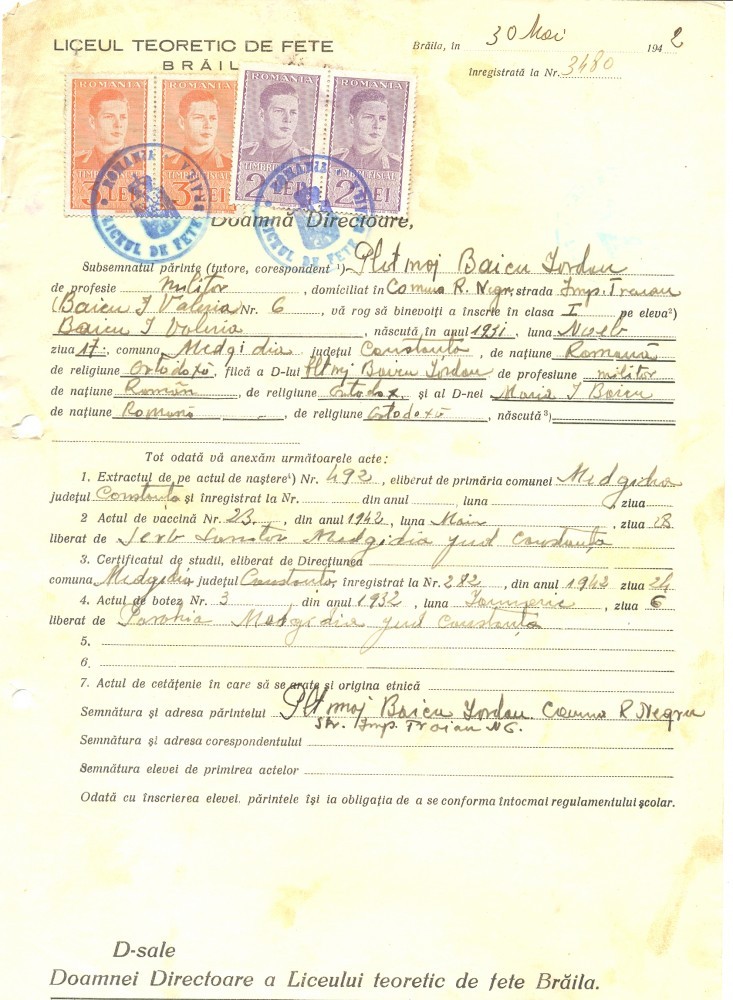 LICEUL TEORETIC DE FETE
BRĂILA
Brăila, în 30 Mai 1942
înregistrată la Nr. 3480
ROMANIA ROMANIA ROMANIA ROMANIA
TIMBRU FISCAL TIMBRU FISCAL TIMBRU FISCAL TIMBRU FISCAL
3 LEI 3 LEI 2 LEI 2 LEI
ROMANIA
LICEUL DE FETE
ROMANIA
LICEUL DE FETE
Doamnă Directoare,
Subsemnatul părinte (tutore, corespondent ¹) Plot maj Baicu Iordan
de profesie militar, domiciliat în Comuna R. Negr, strada Imp. Traian
(Baicu I Valeria Nr. 6, vă rog să binevoiți a înscrie în clasa I pe eleva²)
Baicu I Valeria, născută în anul 1931, luna Noieb
ziua 17, comuna Medgidia județul Constanța, de națiune Română
de religiune Ortodoxă, fiică a D-lui Plt maj Baicu Iordan de profesiune militar
de națiune Român, de religiune Ortodox și al D-nei Maria I Baicu
de națiune Română, de religiune Ortodoxă, născută ³)
Tot odată vă anexăm următoarele acte:
1. Extractul de pe actul de naștere⁴) Nr. 492, eliberat de primăria comunei Medgidia
județul Constanța și înregistrat la Nr. din anul, luna, ziua
2 Actul de vaccină Nr. 23, din anul 1942, luna Main, ziua 28
liberat de Serv Sanitar Medgidia jud Constanța
3. Certificatul de studii, eliberat de Direcțiunea
comuna Medgidia județul Constanta, înregistrat la Nr. 282, din anul 1942 ziua 24
4. Actul de botez Nr. 3, din anul 1932, luna Ianuarie, ziua 6
liberat de Parohia Medgidia jud Constanța
5.
6.
7. Actul de cetățenie în care să se arate și origina etnică
Semnătura și adresa părintelui Plt maj Baicu Iordan Comuna R Negru
Str. Imp. Traian N6.
Semnătura și adresa corespondentului
Semnătura elevei de primirea actelor
Odată cu înscrierea elevei, părintele își ia obligația de a se conforma întocmai regulamentului școlar.
D-sale
Doamnei Directoare a Liceului teoretic de fete Brăila.